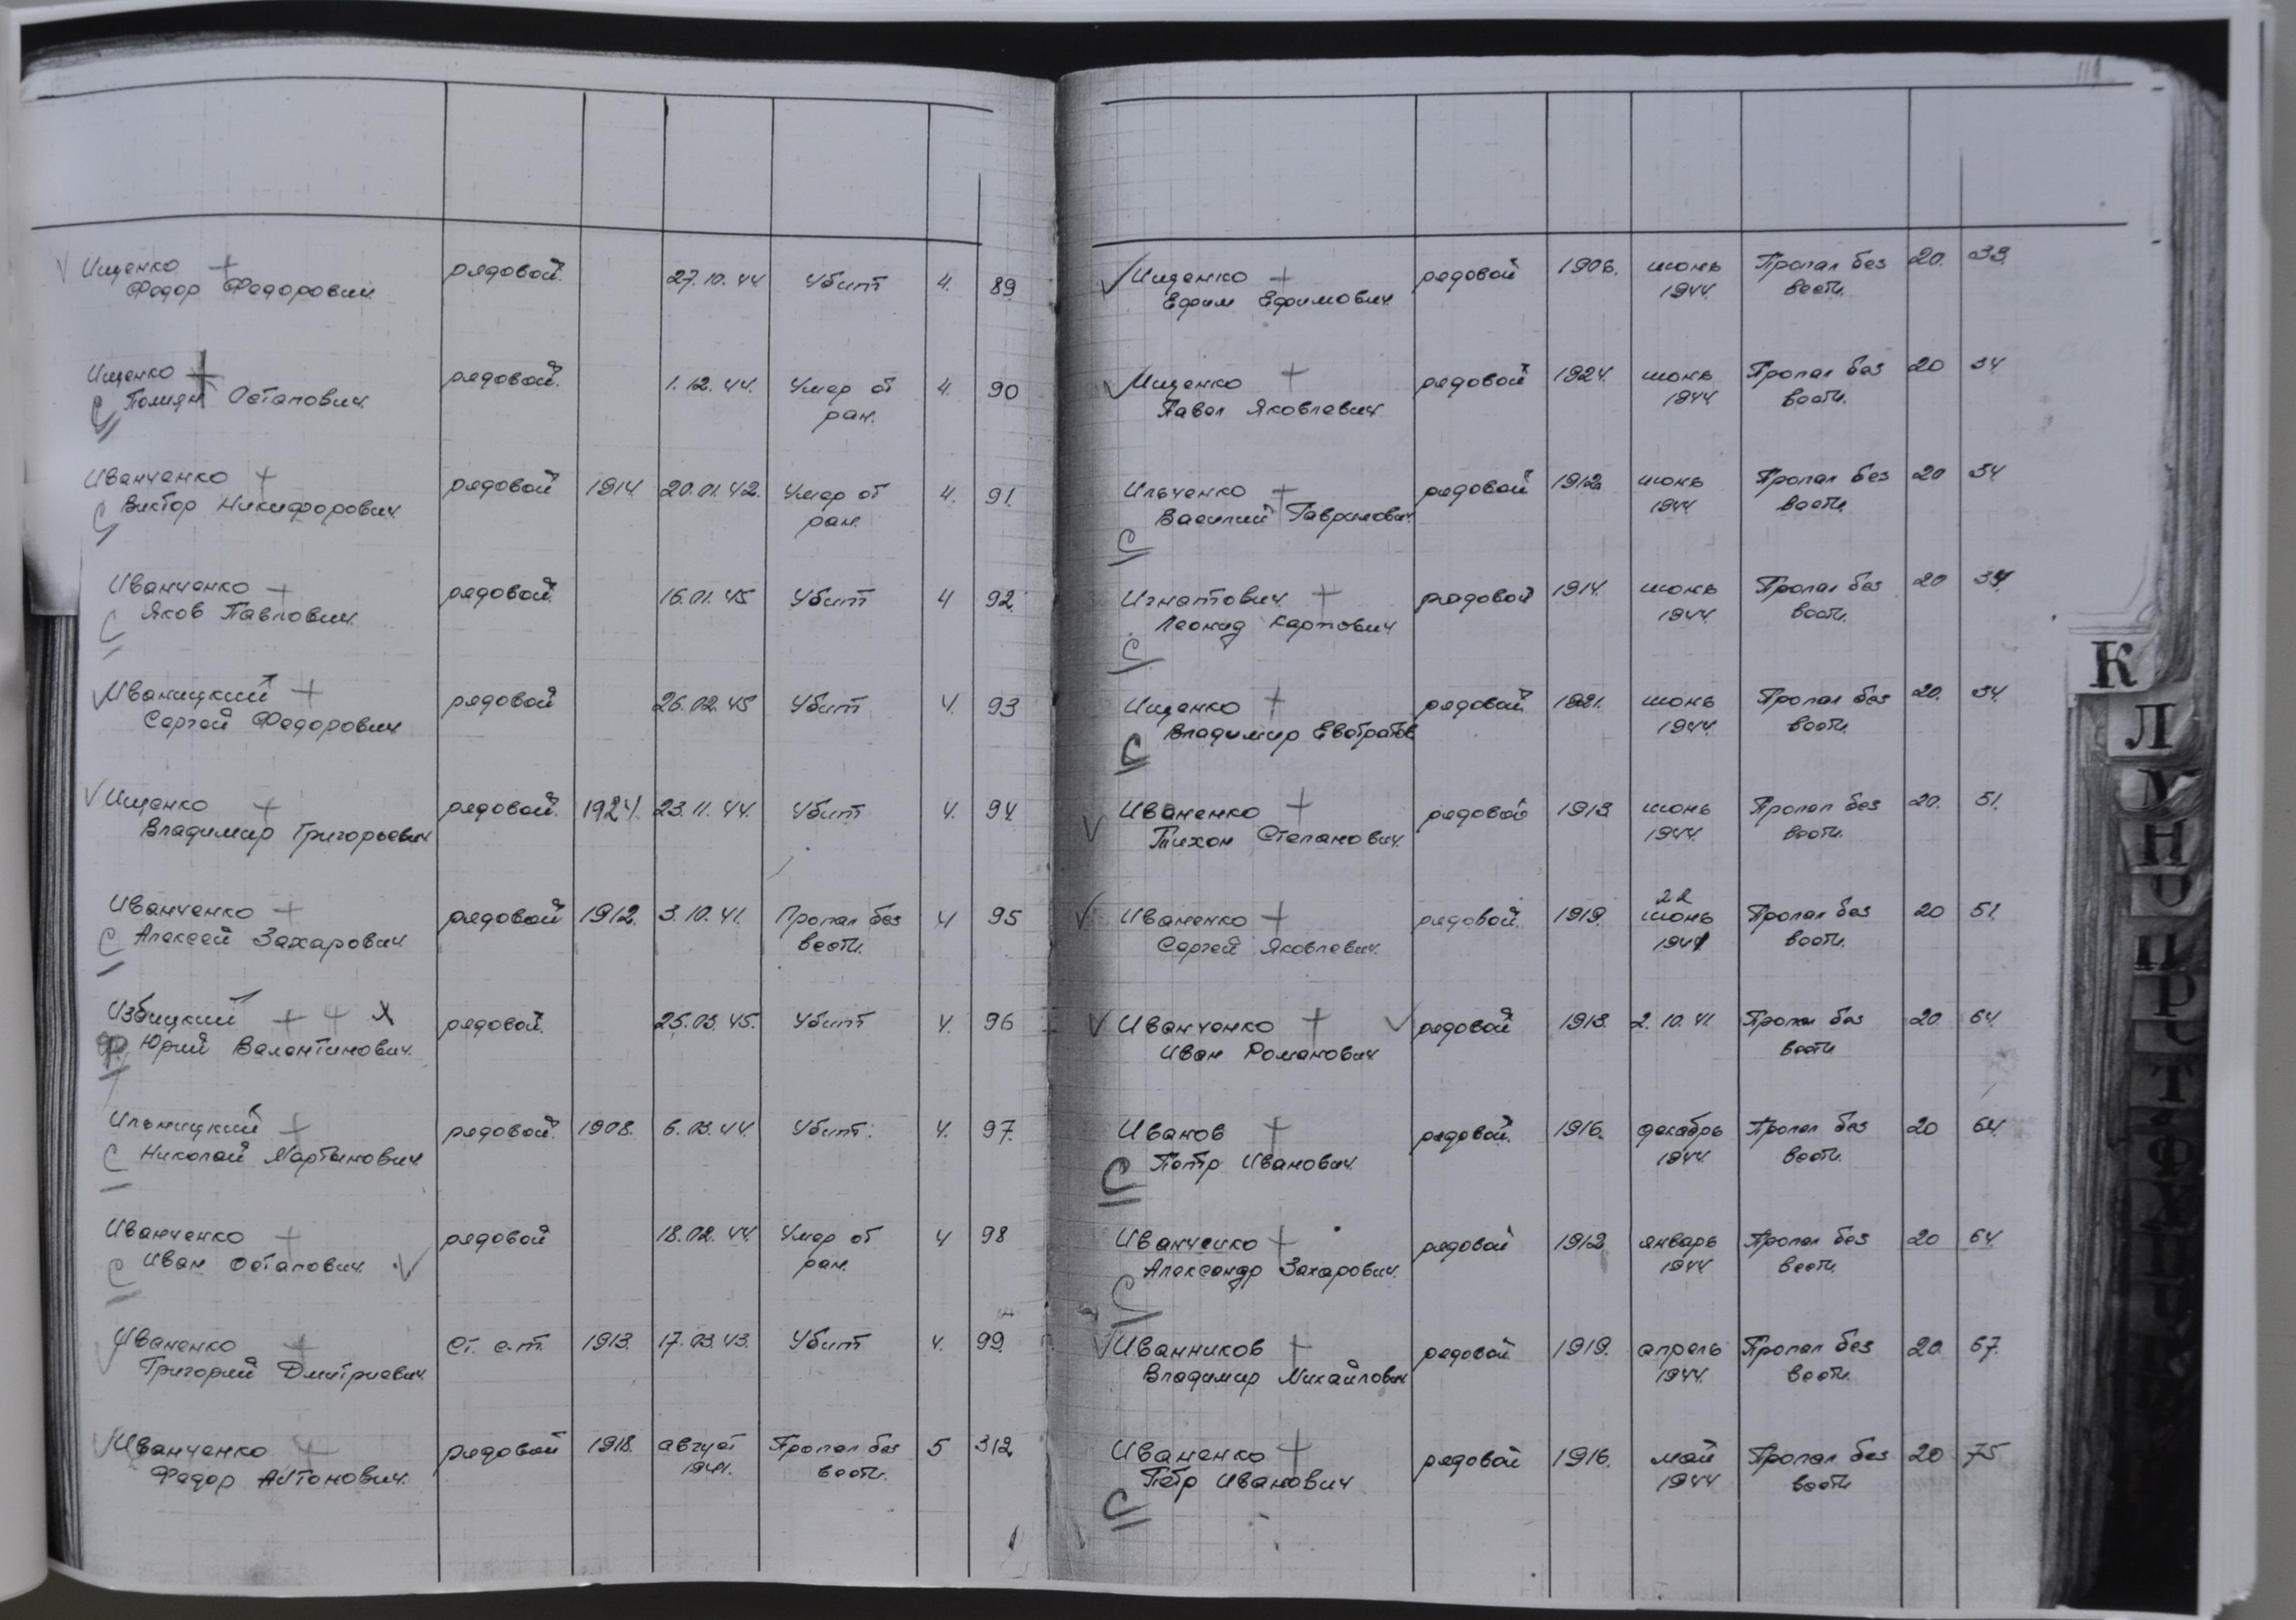 Ищенко рядовой. 27.10.44 Убит 4. 89
Федор Федорович
Ищенко рядовой. 1.12.44. Умер от 4. 90
Остапович. ран.
Иванченко рядовой 1914. 20.01.42. Умер от 4. 91.
С Виктор Никифорович ран.
Иванченко рядовой. 16.01.45 Убит 4 92.
С Яков Павлович.
Иваницкий рядовой 26.02.45 Убит 4. 93
Сергей Федорович
Ищенко рядовой. 1924. 23.11.44. Убит 4. 94
Владимир Григорьевич
Иванченко рядовой 1912. 3.10.41. Пропал без 4 95
С Алексей Захарович вести.
Избицкий рядовой. 25.03.45. Убит 4. 96
Юрий Валентинович.
Ильницкий рядовой. 1908. 6.03.44. Убит. 4. 97.
С Николай Мартынович
Иванченко рядовой 18.02.44. Умер от 4 98
С Иван Остапович. ран.
Иваненко Ст. с-т. 1913. 17.03.43. Убит 4. 99.
Григорий Дмитриевич.
Иванченко рядовой 1918. август Пропал без 5 312
Федор Антонович. 1941. вести.
Ищенко рядовой 1906. июнь Пропал без 20. 33.
Ефим Ефимович 1944. вести.
Ищенко рядовой 1924. июнь Пропал без 20 34
Павел Яковлевич 1944 вести.
Ильченко рядовой 1912 июнь Пропал без 20 34
Василий Гаврилович 1944 вести.
С
Игнатович рядовой 1914. июнь Пропал без 20 34
Леонид Карпович 1944. вести.
С
Ищенко рядовой 1921. июнь Пропал без 20. 34.
Владимир Евстратов 1944. вести.
С
Иваненко рядовой 1913 июнь Пропал без 20. 51.
Тихон Степанович. 1944. вести.
22
Иваненко рядовой. 1919. июнь Пропал без 20 51.
Сергей Яковлевич. 1941 вести.
Иванченко рядовой 1913. 2.10.41 Пропал без 20 64.
Иван Романович вести
Иванов рядовой. 1916. декабрь Пропал без 20 64.
С Петр Иванович. 1944. вести.
Иванченко рядовой 1912 январь Пропал без 20 64.
Александр Захарович. 1944. вести.
С
Иванников рядовой 1919. апрель Пропал без 20 67.
Владимир Михайлович 1944. вести.
Иваненко рядовой 1916. май Пропал без 20 75
Петр Иванович 1944 вести
С
К
Л
М
Н
О
П
Р
С
Т